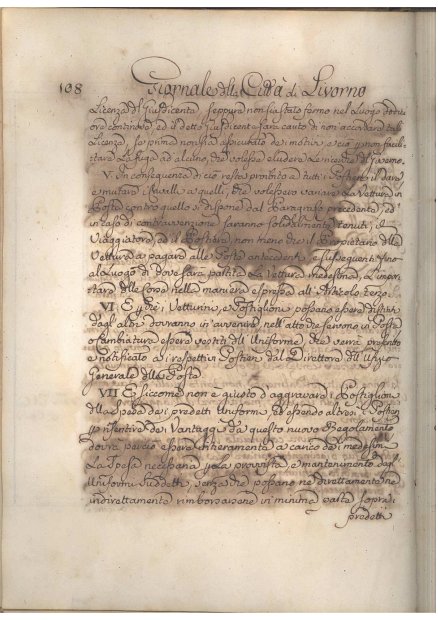 108 Giornale della Città di Livorno
Licenza del Giusdicente, seppure non sia stato fermo nel Luogo dodici
ore continove, ed il detto Giusdicente sarà cauto di non accordare tali
Licenze, se prima non sia assicurato dei motivi, e ciò per non facili-
tare la fuga ad alcuno, che volesse eludere le ricerche del Governo.
V. In conseguenza di ciò resta proibito a tutti i Postieri il dare
e mutare i Cavalli a quelli, che volessero variare la Vettura in
Posta contro quello si dispone dal Paragrafo precedente, ed
in caso di contravvenzione saranno solidalmente tenuti il
Viaggiatore, ed il Postiere, non meno che il Proprietario della
Vettura a pagare alle Poste antecedenti, e susseguenti fino
al Luogo di dove sarà partita la Vettura medesima, l'impor-
tare delle corse nella maniera espressa all'Articolo terzo.
VI. E perchè i Vetturini, e Postiglioni possano essere distinti
dagl'altri dovranno in avvenire nell'atto che servono in Posta
o Cambiatura essere vestiti dell'Uniforme, che verrà prescritto
e notificato ai respettivi Postieri dal Direttore dell'Ufizio
Generale della Posta
VII. E siccome non è giusto d'aggravare i Postiglioni
della Spesa dei predetti Uniformi, ed essendo altresì i Postieri
per risentire dei Vantaggi da questo nuovo Regolamento
dovrà perciò essere interamente a carico dei medesimi
La Spesa necessaria per la provvista e mantenimento degl'
Uniformi Suddetti, senza che possano nè direttamente, nè
indirettamente rimborsarsene in minima parte sopra i
predetti